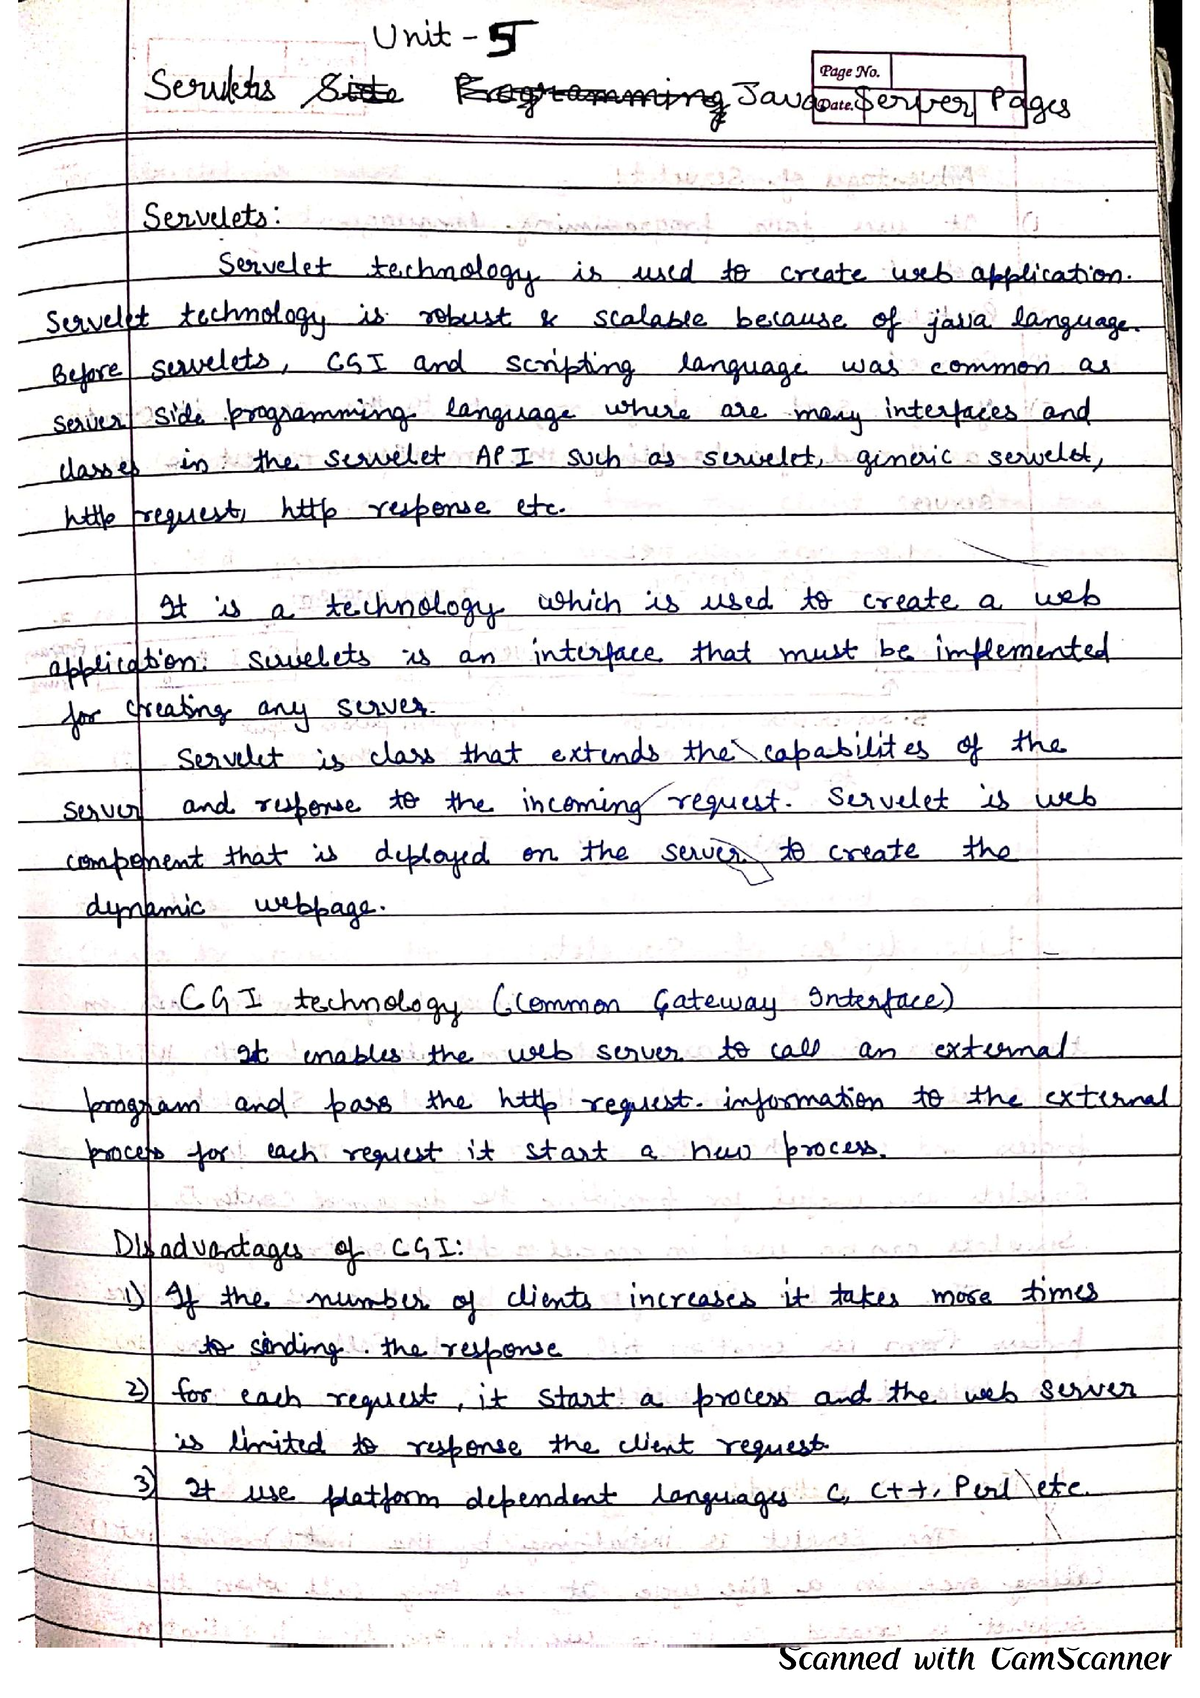 Unit - 5
Servlets Side Programming Java Server Pages
Page No.
Date.
Servelets:
Servelet technology is used to create web application.
Servelet technology is robust & scalable because of java language.
Before servelets, CGI and scripting language was common as
server side programming language where are many interfaces and
classes in the servelet API such as servelet, generic servelet,
http request, http response etc.
It is a technology which is used to create a web
application. Servelets is an interface that must be implemented
for creating any server.
Servelet is class that extends the capabilites of the
server and response to the incoming request. Servelet is web
component that is deployed on the server to create the
dynamic webpage.
CGI technology (Common Gateway Interface)
It enables the web server to call an external
program and pass the http request information to the external
process for each request it start a new process.
Disadvantages of CGI:
1) If the number of clients increases it takes more times
to sending the response
2) for each request, it start a process and the web server
is limited to response the client request.
3) It use platform dependent languages C, C++, Perl etc.
Scanned with CamScanner